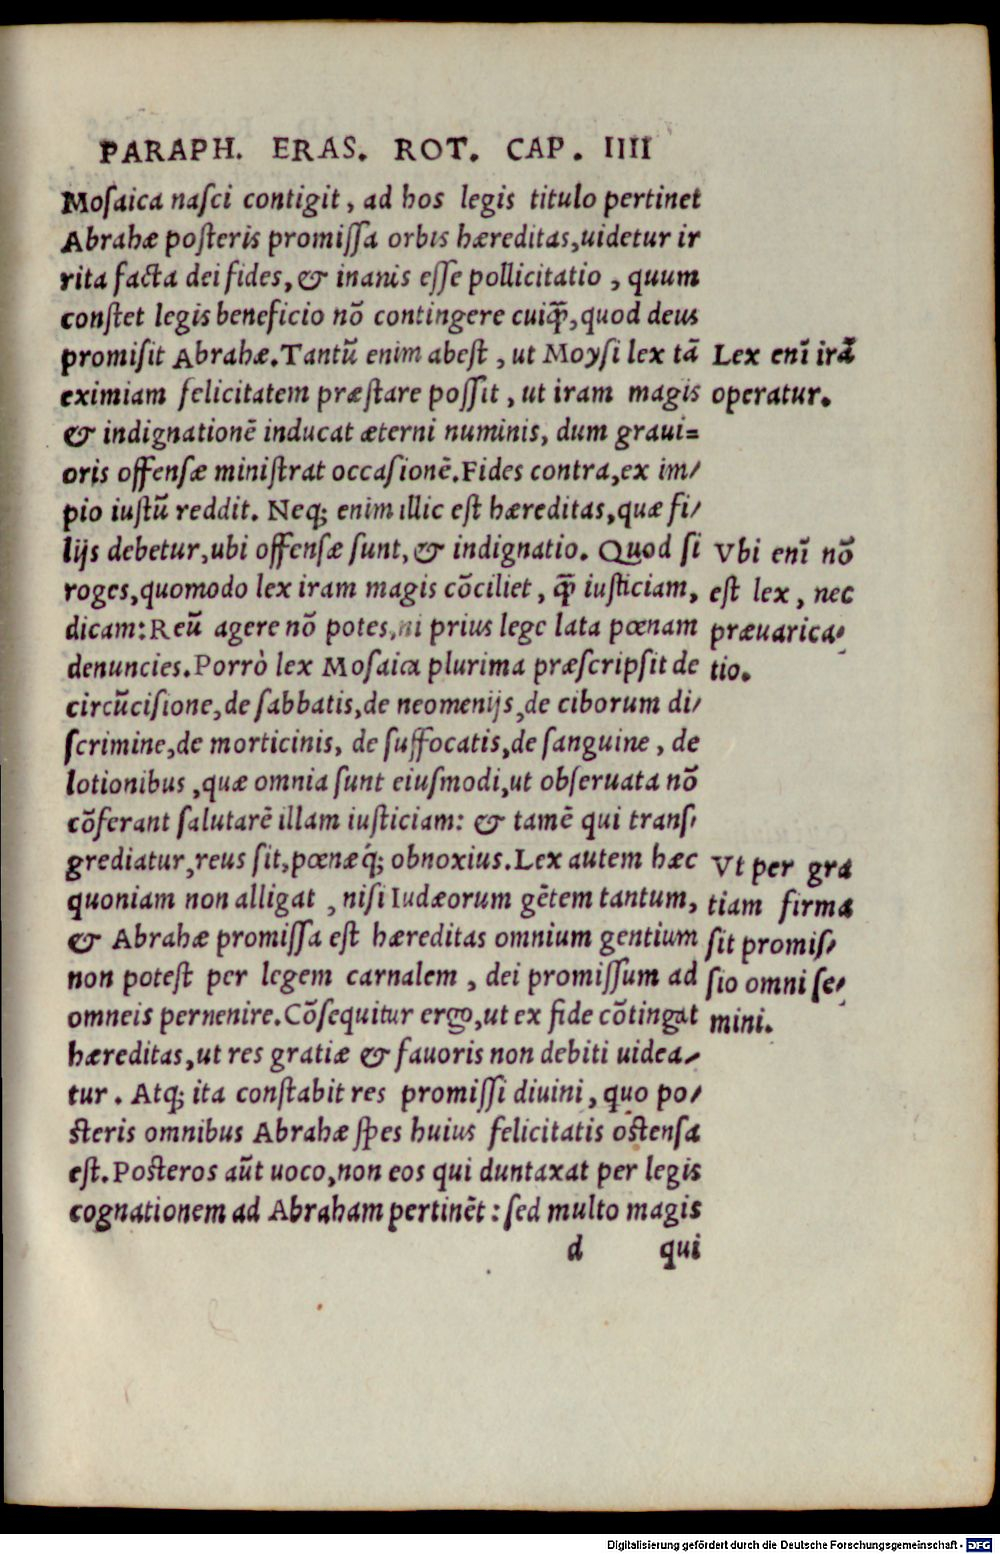 PARAPH. ERAS. ROT. CAP. IIII
Moſaica naſci contigit, ad hos legis titulo pertinet
Abrahæ poſteris promiſſa orbis hæreditas, uidetur ir
rita facta dei fides, & inanis eſſe pollicitatio, quum
conſtet legis beneficio nõ contingere cuiq̃, quod deus
promiſit Abrahæ. Tantũ enim abeſt, ut Moyſi lex tã
eximiam felicitatem præſtare poſſit, ut iram magis
& indignationẽ inducat æterni numinis, dum graui=
oris offenſæ miniſtrat occaſionẽ. Fides contra, ex im/
pio iuſtũ reddit. Neq; enim illic eſt hæreditas, quæ fi/
lijs debetur, ubi offenſæ ſunt, & indignatio. Quod ſi
roges, quomodo lex iram magis cõciliet, q̃ iuſticiam,
dicam: Reũ agere nõ potes, ni prius lege lata pœnam
denuncies. Porrò lex Moſaica plurima præſcripſit de
circũciſione, de ſabbatis, de neomenijs, de ciborum di/
ſcrimine, de morticinis, de ſuffocatis, de ſanguine, de
lotionibus, quæ omnia ſunt eiuſmodi, ut obſeruata nõ
cõferant ſalutarẽ illam iuſticiam: & tamẽ qui tranſ/
grediatur, reus ſit, pœnæq́; obnoxius. Lex autem hæc
quoniam non alligat, niſi Iudæorum gẽtem tantum,
& Abrahæ promiſſa eſt hæreditas omnium gentium
non poteſt per legem carnalem, dei promiſſum ad
omneis peruenire. Cõſequitur ergo, ut ex fide cõtingat
hæreditas, ut res gratiæ & fauoris non debiti uidea/
tur. Atq; ita conſtabit res promiſſi diuini, quo po/
ſteris omnibus Abrahæ ſpes huius felicitatis oſtenſa
eſt. Poſteros aũt uoco, non eos qui duntaxat per legis
cognationem ad Abraham pertinẽt: ſed multo magis
d qui
Lex enĩ irã
operatur.
Vbi enĩ nõ
eſt lex, nec
præuarica/
tio.
Vt per gra
tiam firma
ſit promiſ/
ſio omni ſe/
mini.
Digitalisierung gefördert durch die Deutsche Forschungsgemeinschaft - DFG